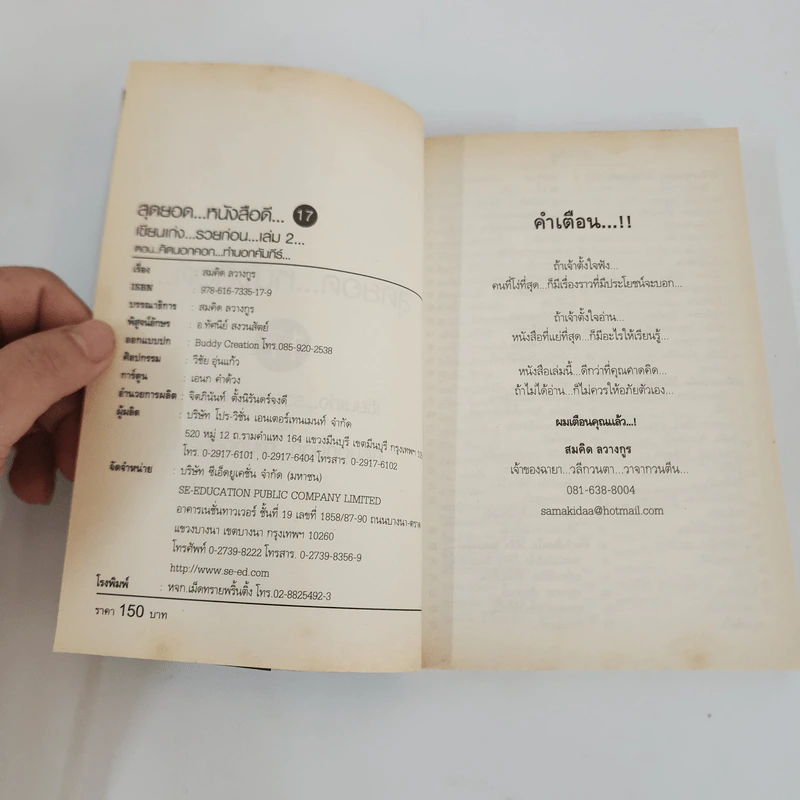 สุดยอด...หนังสือดี... 17
เขียนเก่ง...รวยก่อน...เล่ม 2...
ตอน...คิดนอกคอก...ทำนอกคัมภีร์...
เรื่อง : สมคิด ลวางกูร
ISBN : 978-616-7335-17-9
บรรณาธิการ : สมคิด ลวางกูร
พิสูจน์อักษร : อ.ทัศนีย์ สงวนสัตย์
ออกแบบปก : Buddy Creation โทร.085-920-2538
ศิลปกรรม : วิชัย อุ่นแก้ว
การ์ตูน : เอนก คำด้วง
อำนวยการผลิต : จิตภินันท์ ตั้งนิรันดร์จงดี
ผู้ผลิต : บริษัท โปร-วิชั่น เอนเตอร์เทนเมนท์ จำกัด
520 หมู่ 12 ถ.รามคำแหง 164 แขวงมีนบุรี เขตมีนบุรี กรุงเทพฯ
โทร. 0-2917-6101 , 0-2917-6404 โทรสาร. 0-2917-6102
จัดจำหน่าย : บริษัท ซีเอ็ดยูเคชั่น จำกัด (มหาชน)
SE-EDUCATION PUBLIC COMPANY LIMITED
อาคารเนชั่นทาวเวอร์ ชั้นที่ 19 เลขที่ 1858/87-90 ถนนบางนา-ตราด
แขวงบางนา เขตบางนา กรุงเทพฯ 10260
โทรศัพท์ 0-2739-8222 โทรสาร. 0-2739-8356-9
http://www.se-ed.com
โรงพิมพ์ : หจก.เม็ดทรายพริ้นติ้ง โทร.02-8825492-3
ราคา 150 บาท
คำเตือน...!!
ถ้าเจ้าตั้งใจฟัง...
คนที่โง่ที่สุด...ก็มีเรื่องราวที่มีประโยชน์จะบอก...
ถ้าเจ้าตั้งใจอ่าน...
หนังสือที่แย่ที่สุด...ก็มีอะไรให้เรียนรู้...
หนังสือเล่มนี้...ดีกว่าที่คุณคาดคิด...
ถ้าไม่ได้อ่าน...ก็ไม่ควรให้อภัยตัวเอง...
ผมเตือนคุณแล้ว...!
สมคิด ลวางกูร
เจ้าของฉายา...วลีกวนตา...วาจากวนตีน...
081-638-8004
samakidaa@hotmail.com